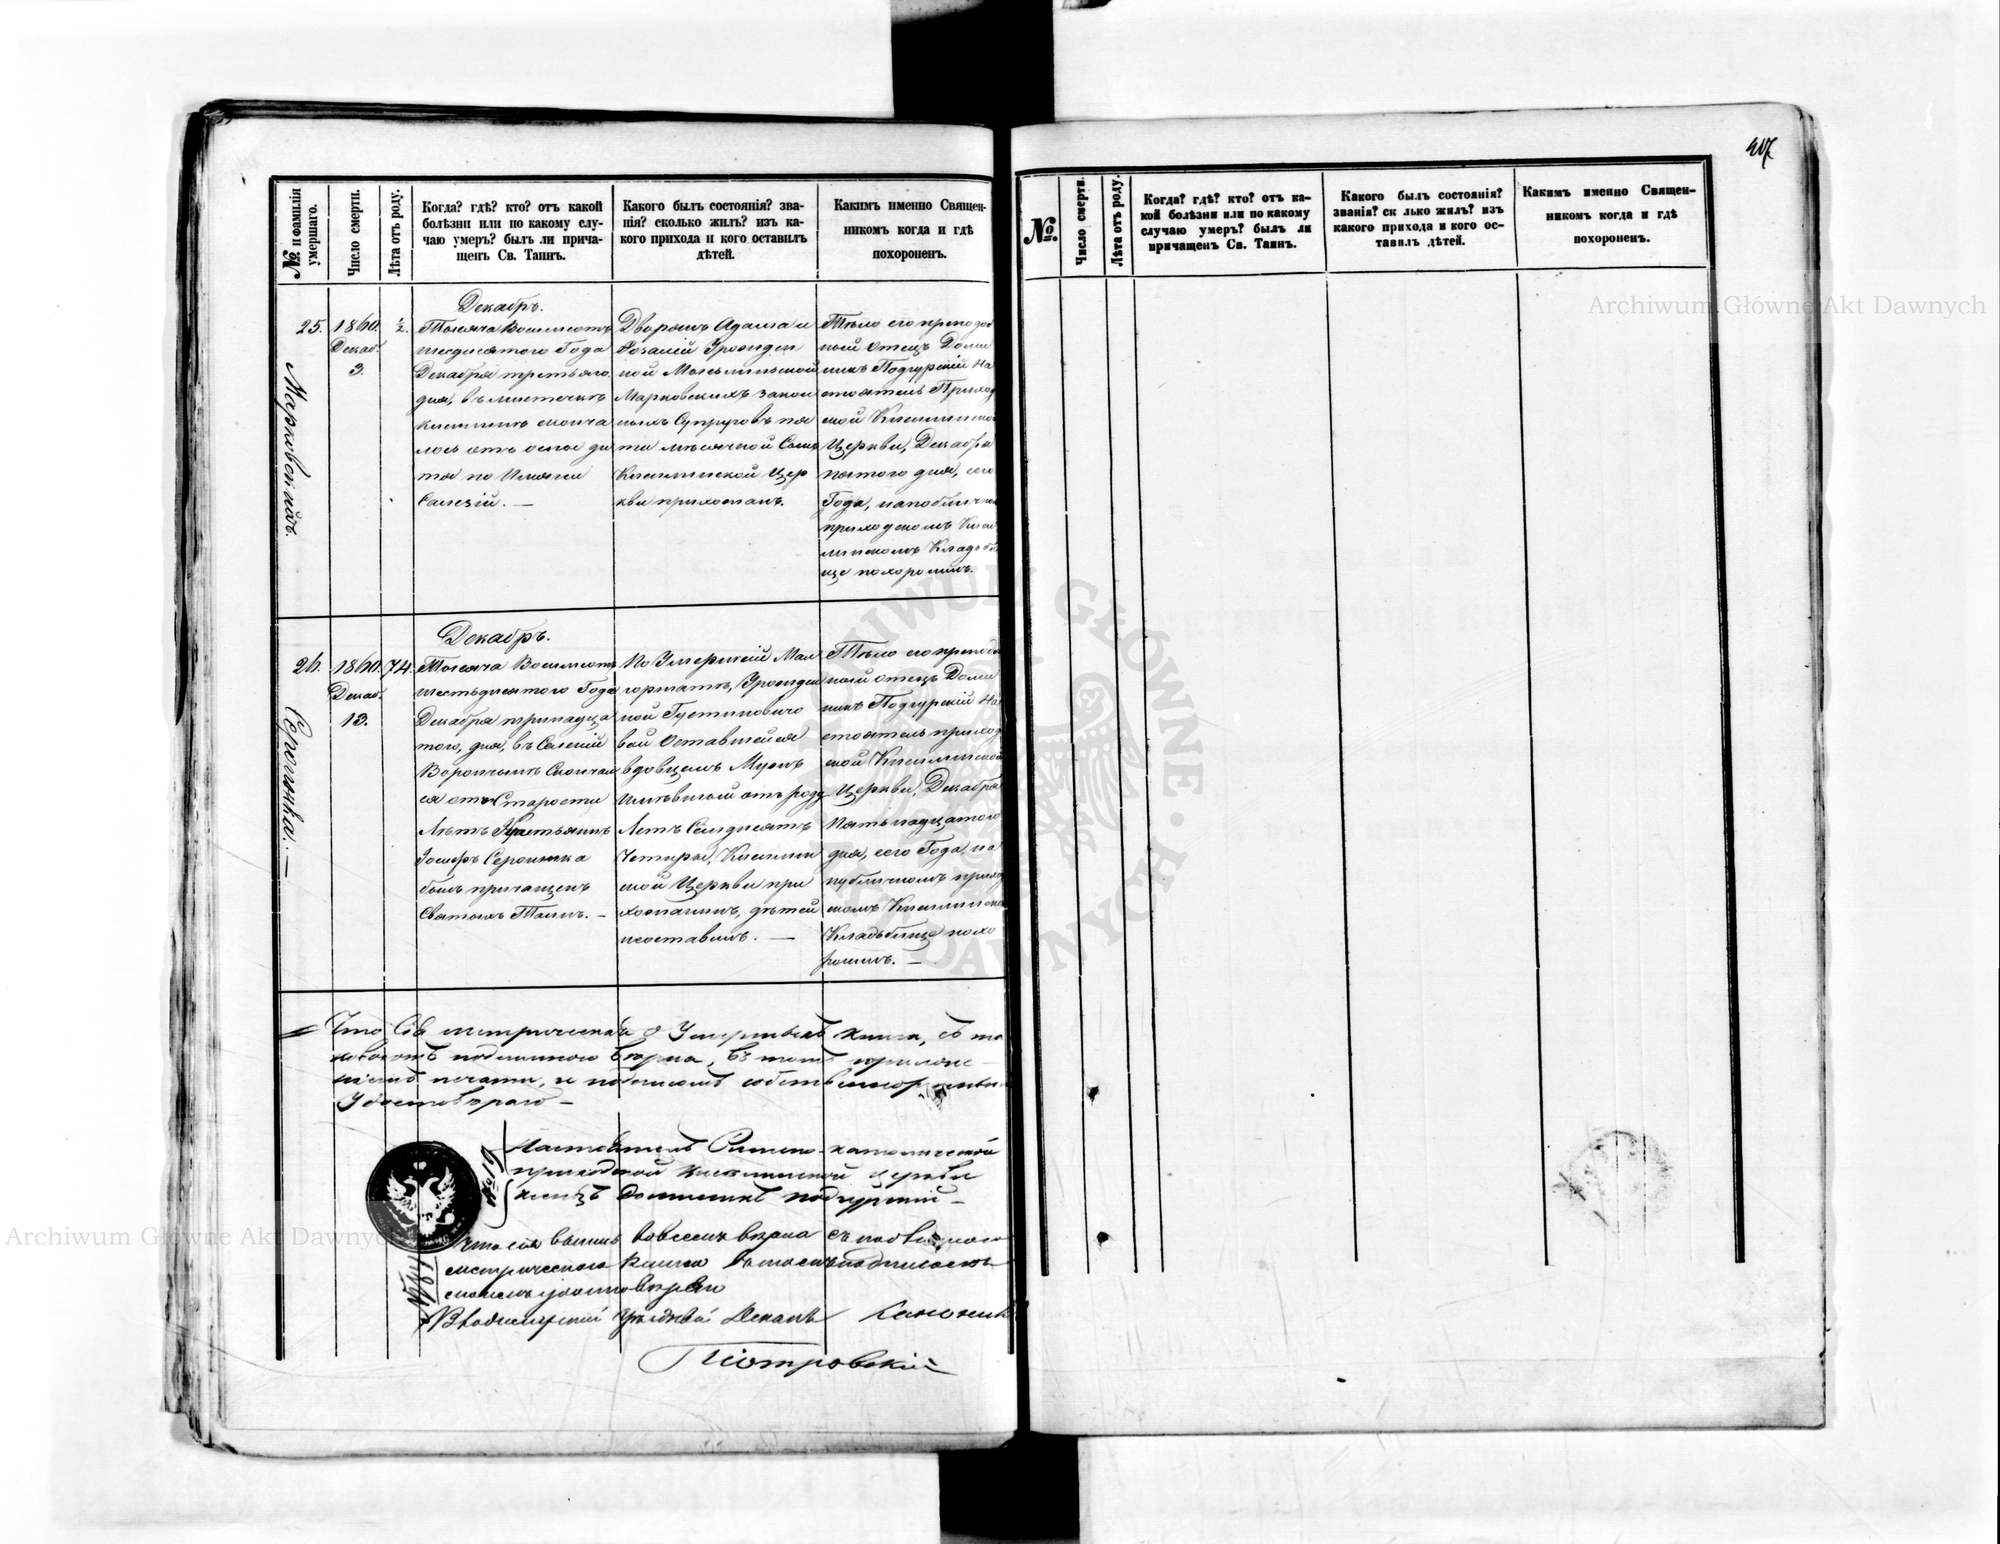 207
№ и фамилія умершаго.
Число смерти.
Лѣта отъ роду.
Когда? гдѣ? кто? отъ какой
болѣзни или по какому слу-
чаю умеръ? былъ ли прича-
щенъ Св. Таинъ.
Какого былъ состоянія? зва-
нія? сколько жилъ? изъ ка-
кого прихода и кого оставилъ
дѣтей.
Какимъ именно Священ-
никомъ когда и гдѣ
похороненъ.
25.
Марковскій.
1860.
Декаб.
3.
½
Декабръ.
Тысяча Восьмсотъ
шесдесятого Года
Декабря третьяго
дня, въ местечкѣ
Киселинѣ сконча
лось отъ оспы ди
тя по Имени
Салезій. —
Дворянъ Адама и
Розаліи Урожден
ной
Марковскихъ закон
ныхъ Супруговъ пя
ти мѣсячной Сынъ
Киселинской Цер
кви прихожанъ.
Тѣло его преподоб
ный Отецъ Доми
никъ Подгурскій На
стоятель Приход
ской Киселинской
Церкви, Декабря
пятого дня, сего
Года, на публичномъ
приходскомъ Кисе
линскомъ Кладьби
ще похоронилъ.
26.
Серомка. —
1860.
Декаб.
13.
74.
Декабръ.
Тысяча Восьмсотъ
шестьдесятого Года
Декабря тринадца
того, дня, въ Селеніи
Ворончинѣ Скончал
ся отъ Старости
Лѣтъ Крестьянинъ
Іосифъ
былъ причащенъ
Святыхъ Таинъ. —
По Умершей Мал
горжатѣ, Урожден
ной Густинович
вой Оставшейся
вдовцемъ Мужъ
имѣвшый отъ роду
Летъ Семдесятъ
Четыры, Киселин
ской Церкви при
хожанинъ, дѣтей
неоставилъ. —
Тѣло его преподоб
ный отецъ Доми
никъ Подгурскій На
стоятель приход
ской Киселинской
Церкви, Декабря
Пятьнадцатого
дня, сего Года, на
публичномъ приход
скомъ Киселинском
Кладьбище похо
ронилъ. —
Что Сія метрическая о Умершыхъ книга, съ та
ковоютъ подлинною верна, въ томъ приложе—
ніемъ печати, и подписомъ собственноручнымъ
Удостоверяю —
Настоятель Римско-католической
приходской Киселинской церкви
ксендзъ Доминикъ Подгурскій —
Что сія вовсемъ верна съ подлинною
метрическою Книгою въ томъ подписомъ
своимъ удостоверяю
Владимірскій Уѣздный Деканъ Каноникъ
Піотровскій
№.
Число смерти.
Лѣта отъ роду.
Когда? гдѣ? кто? отъ ка-
кой болѣзни или по какому
случаю умеръ? былъ ли
причащенъ Св. Таинъ.
Какого былъ состоянія?
званія? ск лько жилъ? изъ
какого прихода и кого ос-
тавилъ дѣтей.
Какимъ именно Священ-
никомъ когда и гдѣ
похороненъ.
Archiwum Główne Akt Dawnych
Archiwum Główne Akt Dawnych
ARCHIWUM GŁÓWNE AKT DAWNYCH